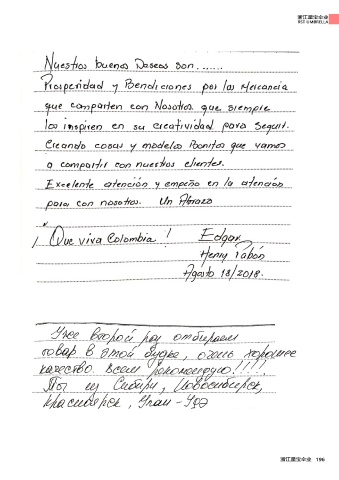 浙江星宝伞业
RST UMBRELLA
Nuestros buenos Deseos son.......
Prosperidad y Bendiciones por las Mercancia
que comparten con Nosotros que siempre
los inspiren en su creatividad para seguir.
Creando cosas y modelos Bonitos que vamos
a compartir con nuestros clientes.
Excelente atención y empeño en la atención
para con nosotros. Un Abrazo
¡ Que viva Colombia !
Edgar
Henry Pabón
Agosto 18/2018.
Уже второй раз отбираем
товар в этой будке, очень хорошее
качество. Всем рекомендую!!!!
Мы из Сибири, Новосибирск,
Красноярск, Улан-Удэ
浙江星宝伞业 196